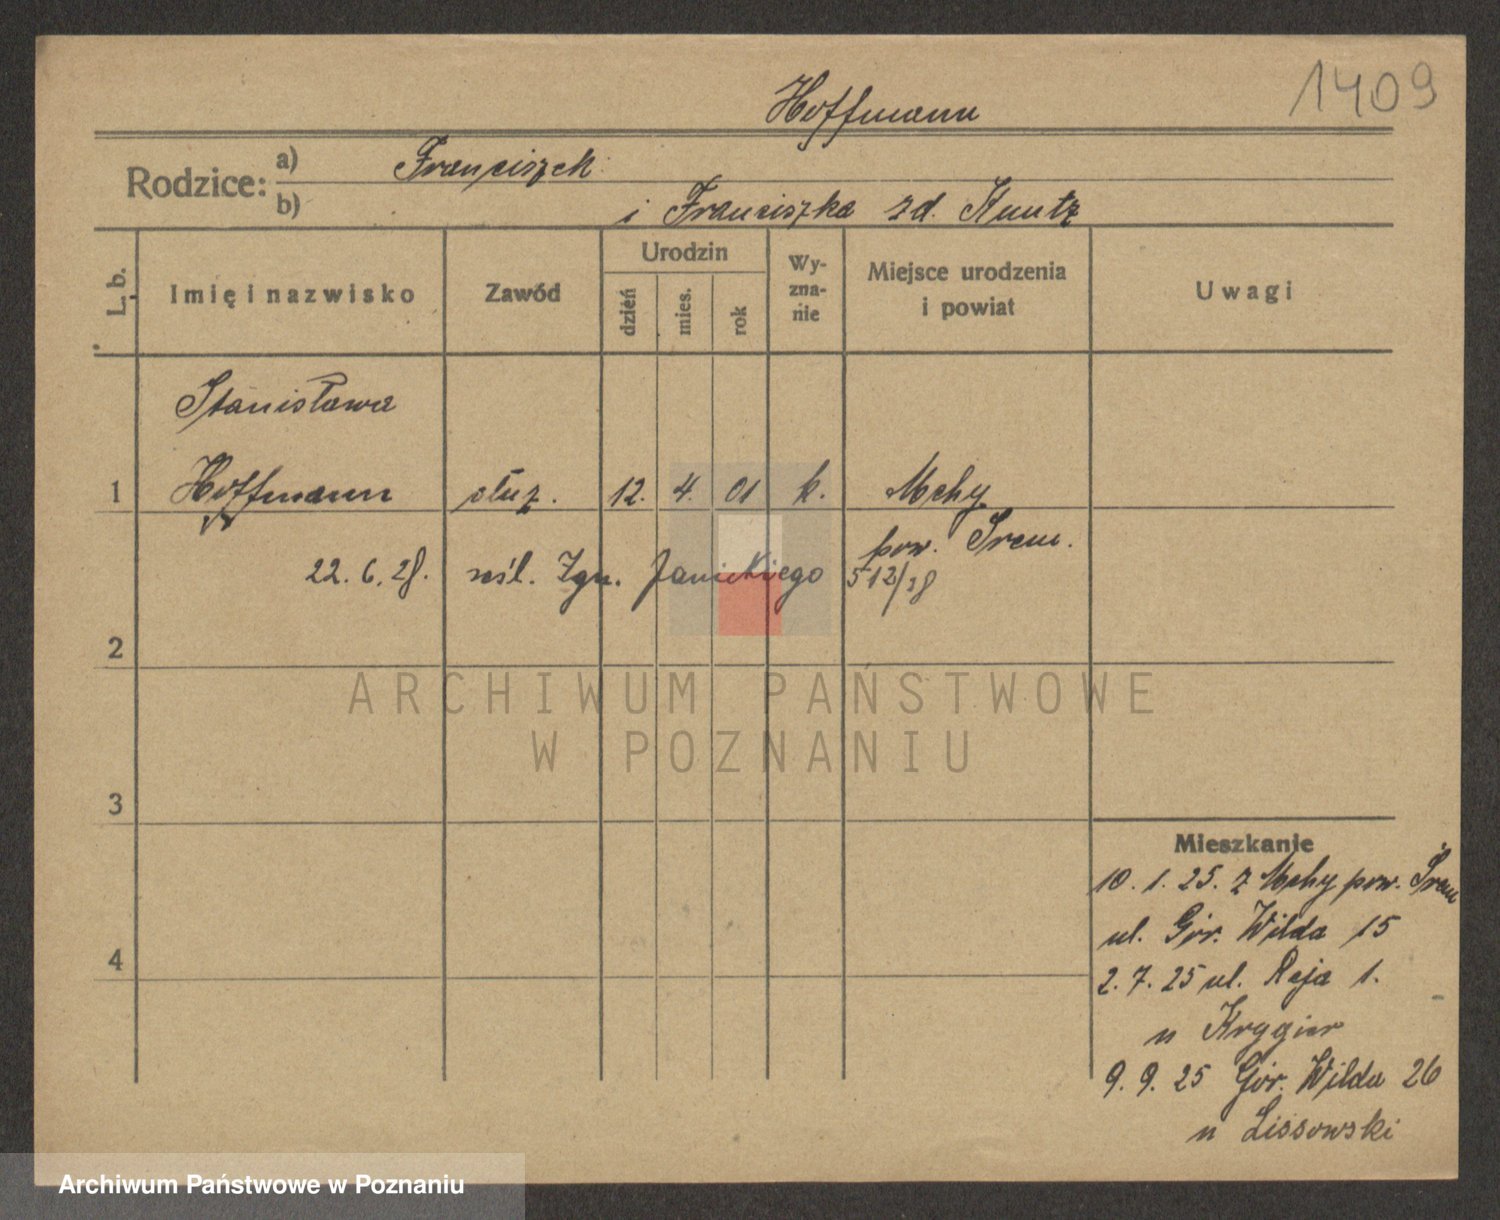 1409
Hoffmann
Rodzice: a) Franciszek
b) i Franciszka zd. Kuntz
L. b.
Imię i nazwisko
Zawód
Urodzin
dzień
mies.
rok
Wy-
zna-
nie
Miejsce urodzenia
i powiat
Uwagi
Stanisława
1 Hoffmann służ. 12. 4. 01 k. Mchy
pow. Śrem.
22.6.28. Zgn. Janickiego 512/28
2
ARCHIWUM PAŃSTWOWE
W POZNANIU
3
4
Mieszkanie
10. 1. 25. z Mchy pow. Śrem
ul. Gór. Wilda 15
2. 7. 25 ul. Reja 1.
u Krygier
9. 9. 25 Gór. Wilda 26
u Lissowski
Archiwum Państwowe w Poznaniu